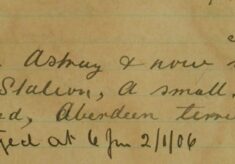 Astray & now
Station, a small
ed, Aberdeen terri
ged at 6 pm 2/1/06